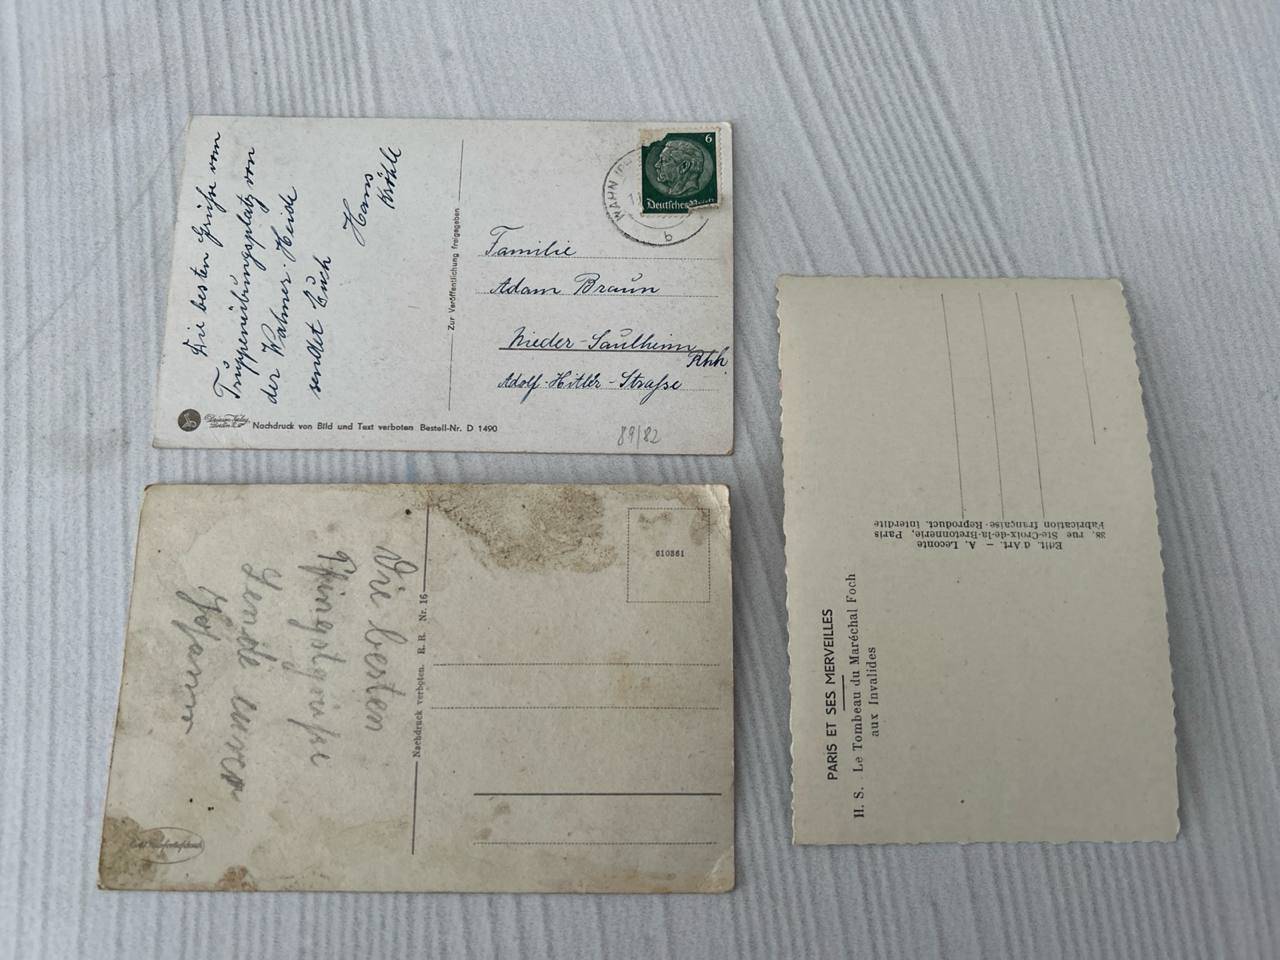 Die besten Grüße vom
Truppenübungsplatz von
der Wahner Heide
sendet Euch
Hans
Köhle
Zur Veröffentlichung freigegeben
6
Deutsches Reich
WAHN
b
Familie
Adam Braun
Nieder-Saulheim
Rhh.
Adolf-Hitler-Straße
Nachdruck von Bild und Text verboten Bestell-Nr. D 1490
89/82
Die besten
Pfingstgrüße
sende eurer
Nachdruck verboten. R. R. Nr. 16
610861
PARIS ET SES MERVEILLES
H. S. Le Tombeau du Maréchal Foch
aux Invalides
Edit. d'Art. — A. Leconte
38, rue Ste-Croix-de-la-Bretonnerie, Paris
Fabrication française - Reproduct. interdite